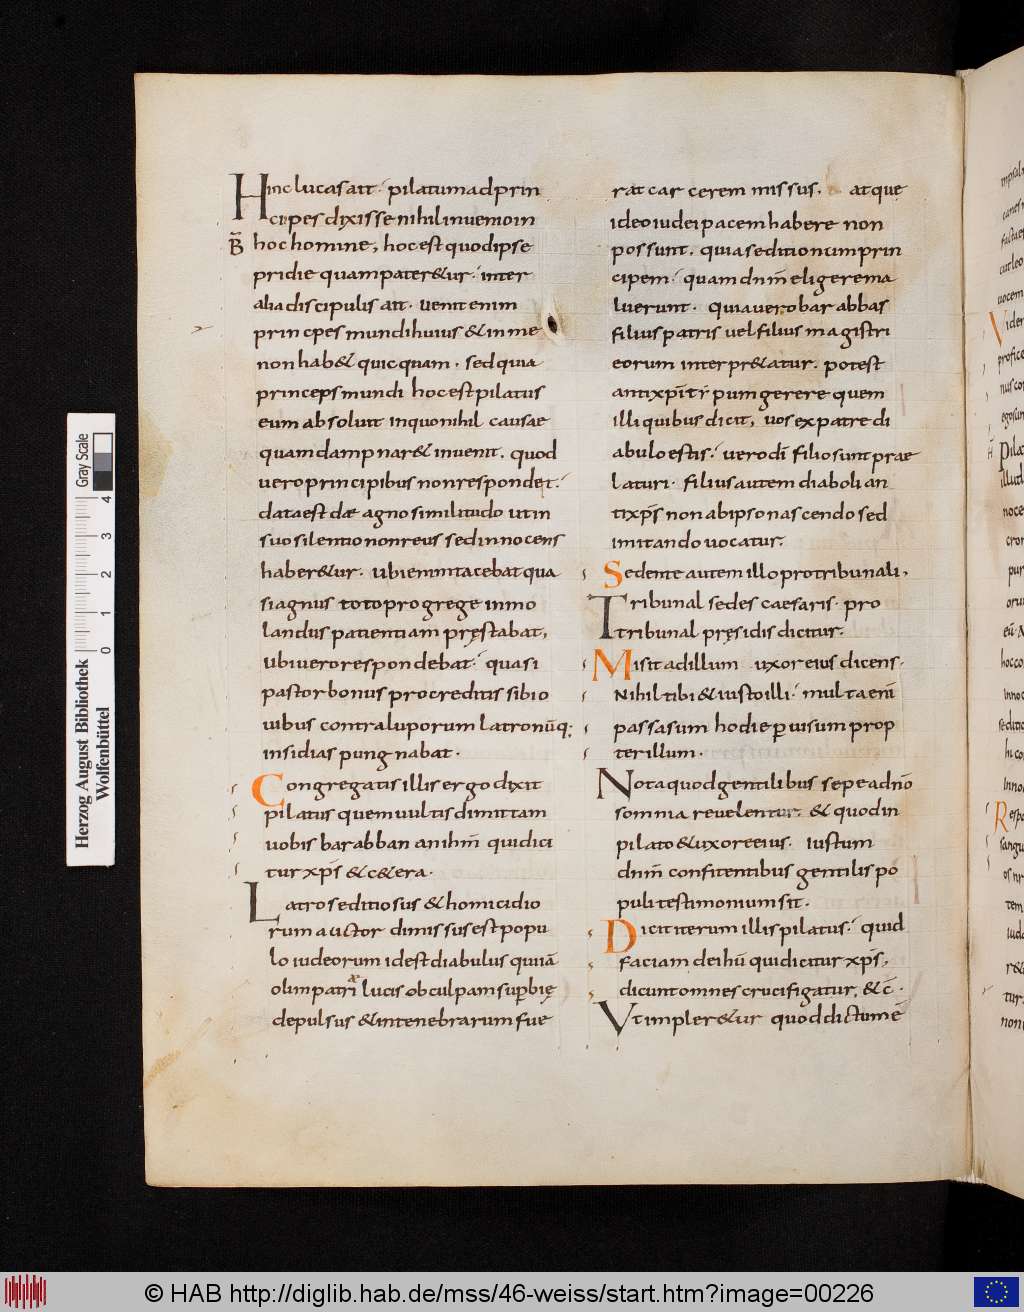 Hinc lucas ait·' pilatum ad prin
cipes dixisse nihil inuenio in
B̄
hoc homine; hoc est quod ipse
pridie quam pater&ur·' inter
alia discipulis ait· uenit enim
princpes mundi huius & in me
non hab& quicquam· sed quia
princeps mundi hoc est pilatus
eum absoluit in quo nihil causae
quam dampnar& inuenit· quod
uero principibus non respondet·'
data est dae agno similitudo ut in
suo silentio non reus sed innocens
haber&ur· ubi enim tacebat qua
si agnus toto pro grege inmo
landus patientiam pręstabat,
ubi uero respondebat·' quasi
pastor bonus pro creditis sibi o
uibus contra luporum latronūq;
insidias pungnabat·
Congregatis illis ergo dixit
pilatus quem uultis dimittam
uobis barabban an ihm̄ qui dici
tur xp̄s & c&era·
Latro seditiosus & homicidio
rum auctor dimissus est popu
lo iudeorum id est diabulus quiā
olim patria lucis ob culpam supbię
depulsus & in tenebrarum fue
rat carcerem missus· atquę
ideo iudei pacem habere non
possunt· quia seditionum prin
cipem·' quam dnm̄ eligere ma
luerunt· quia uero barabbas
filius patris uel filius magistri
eorum interpr&atur· potest
antixpi tipum gerere quem
illi quibus dicit, uos ex patre di
abulo estis·' uero dī filio sunt prae
laturi· filius autem diaboli an
tixp̄s non ab ipso nascendo sed
imitando uocatur·
Sedente autem illo pro tribunali·
Tribunal sedes caesaris· pro
tribunal pręsidis dicitur·
Misit ad illum uxor eius dicens·
Nihil tibi & iusto illi·' multa eni͂
passa sum hodie p̱ uisum prop
ter illum·
Nota quod gentilibus sepe ad nō
somnia reuelentur & quod in
pilato & uxore eius· iustum
dnm̄ confitentibus gentilis po
puli testimonium sit·
Dicit iterum illis pilatus·' quid
faciam de ihū qui dicitur xp̄s,
dicunt omnes crucifigatur, & c̄·
Vt impler&ur quod dictum ē
Herzog August Bibliothek
Wolfenbüttel
Gray Scale
0 1 2 3 4
© HAB http://diglib.hab.de/mss/46-weiss/start.htm?image=00226